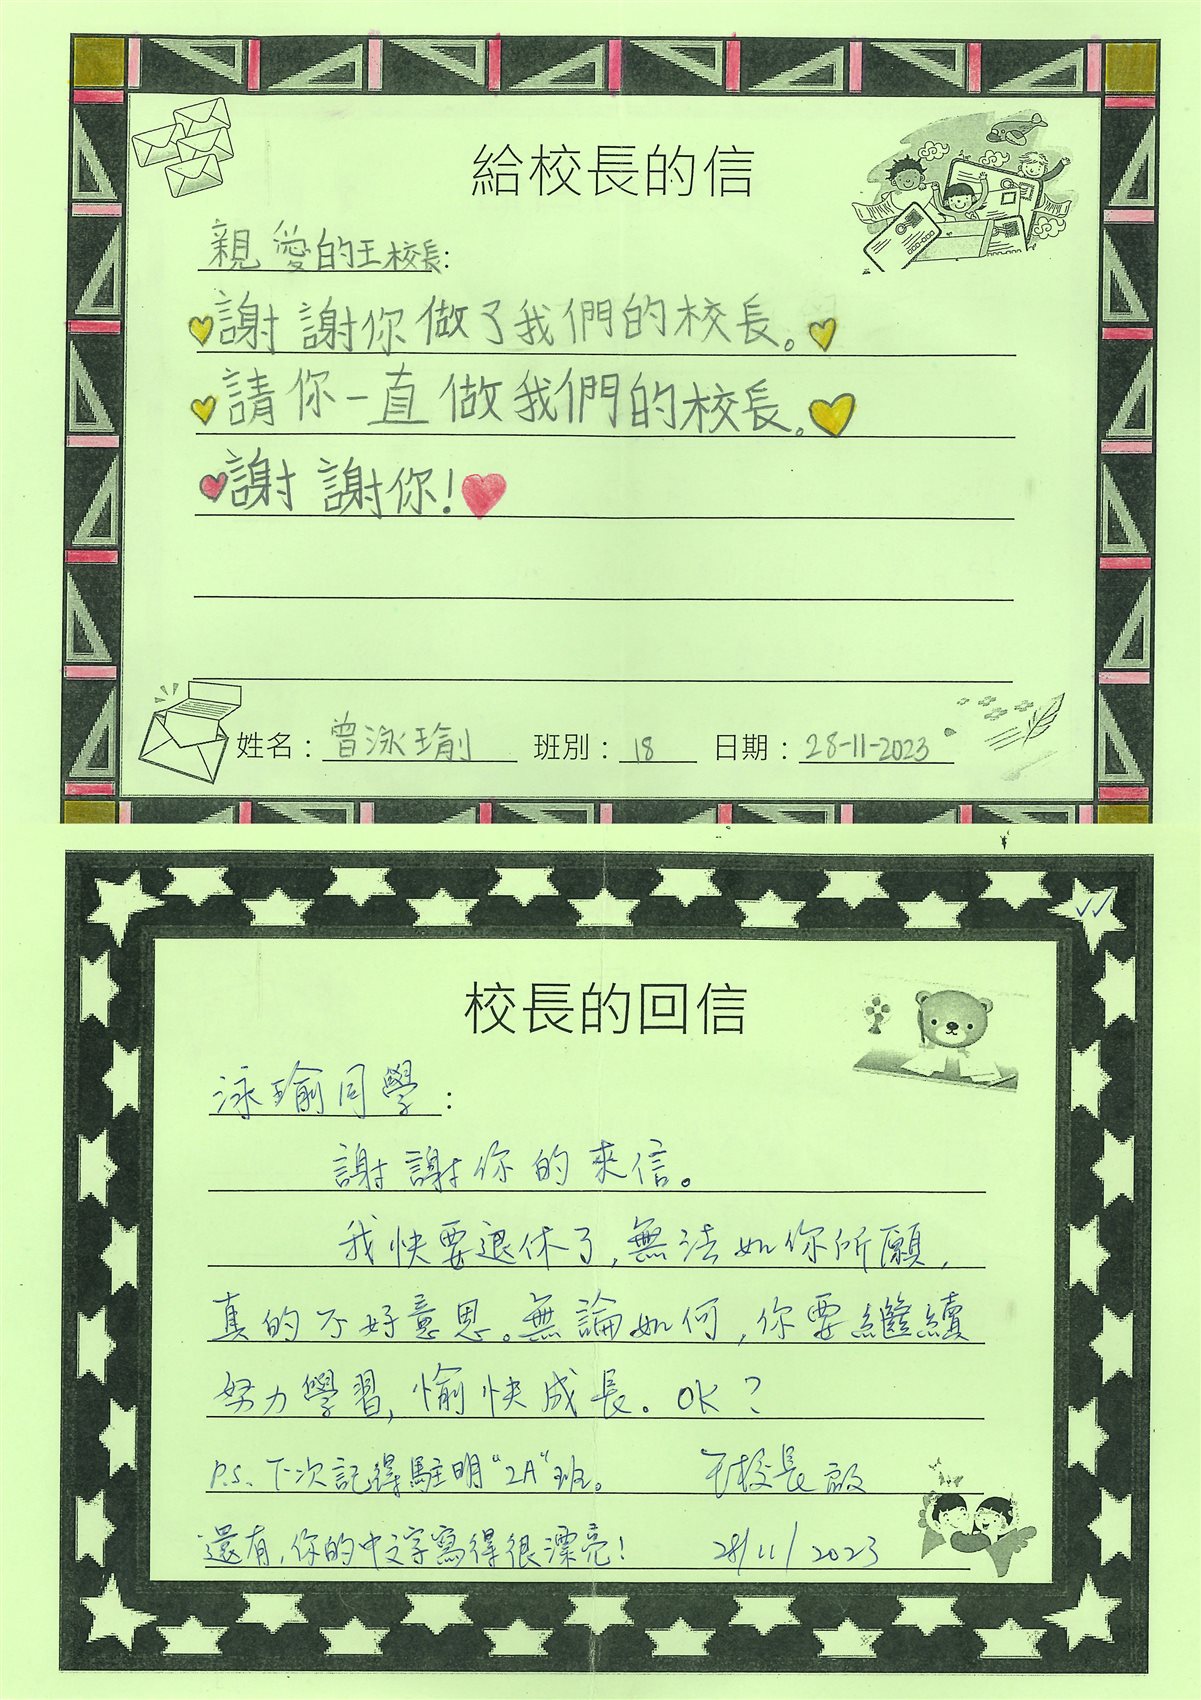 給校長的信
親愛的王校長:
謝謝你做了我們的校長。
請你一直做我們的校長。
謝謝你!
姓名：曾泳瑜 班別：18 日期：28-11-2023
校長的回信
泳瑜同學：
謝謝你的來信。
我快要退休了,無法如你所願,
真的不好意思。無論如何,你要繼續
努力學習,愉快成長。OK?
P.S. 下次記得駐明“2A”班。 王校長啟
還有,你的中文字寫得很漂亮! 28/11/2023